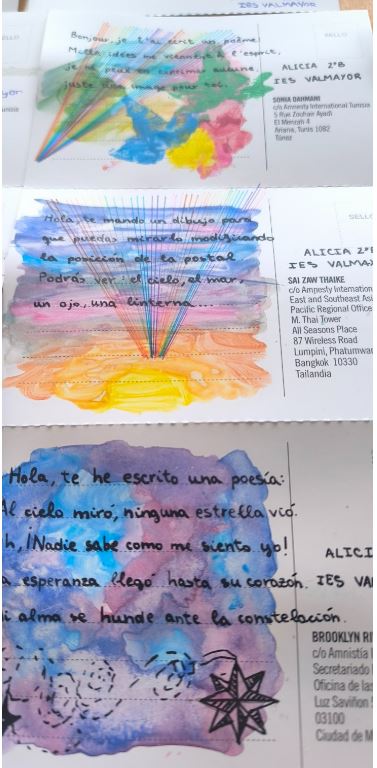 IES VALMAYOR
SELLO
Bonjour, je t'ai écrit un poème!
Mille idées me viennent à l'esprit,
je ne peux en exprimer aucune,
juste une image pour toi.
ALICIA 2ºB
IES VALMAYOR
SONIA DAHMANI
c/o Amnesty International Tunisia
5 Rue Zouhair Ayadi
El Menzah 4
Ariana, Tunis 1082
Túnez
SELLO
Hola te mando un dibujo para
que puedas mirarlo modificando
la posición de la postal
Podrás ver: el cielo, el mar,
un ojo, una linterna....
ALICIA 2ºB
IES VALMA
SAI ZAW THAIKE
c/o Amnesty Internation
East and Southeast Asi
Pacific Regional Office
M. Thai Tower
All Seasons Place
87 Wireless Road
Lumpini, Phatumwan
Bangkok 10330
Tailandia
Hola, te he escrito una poesía:
Al cielo miró, ninguna estrella vió.
h, ¡Nadie sabe como me siento yo!
a esperanza llego hasta su corazón.
i alma se hunde ante la constelación.
ALICI
IES VA
BROOKLYN RI
c/o Amnistía I
Secretariado
Oficina de las
Luz Saviñón
03100
Ciudad de M